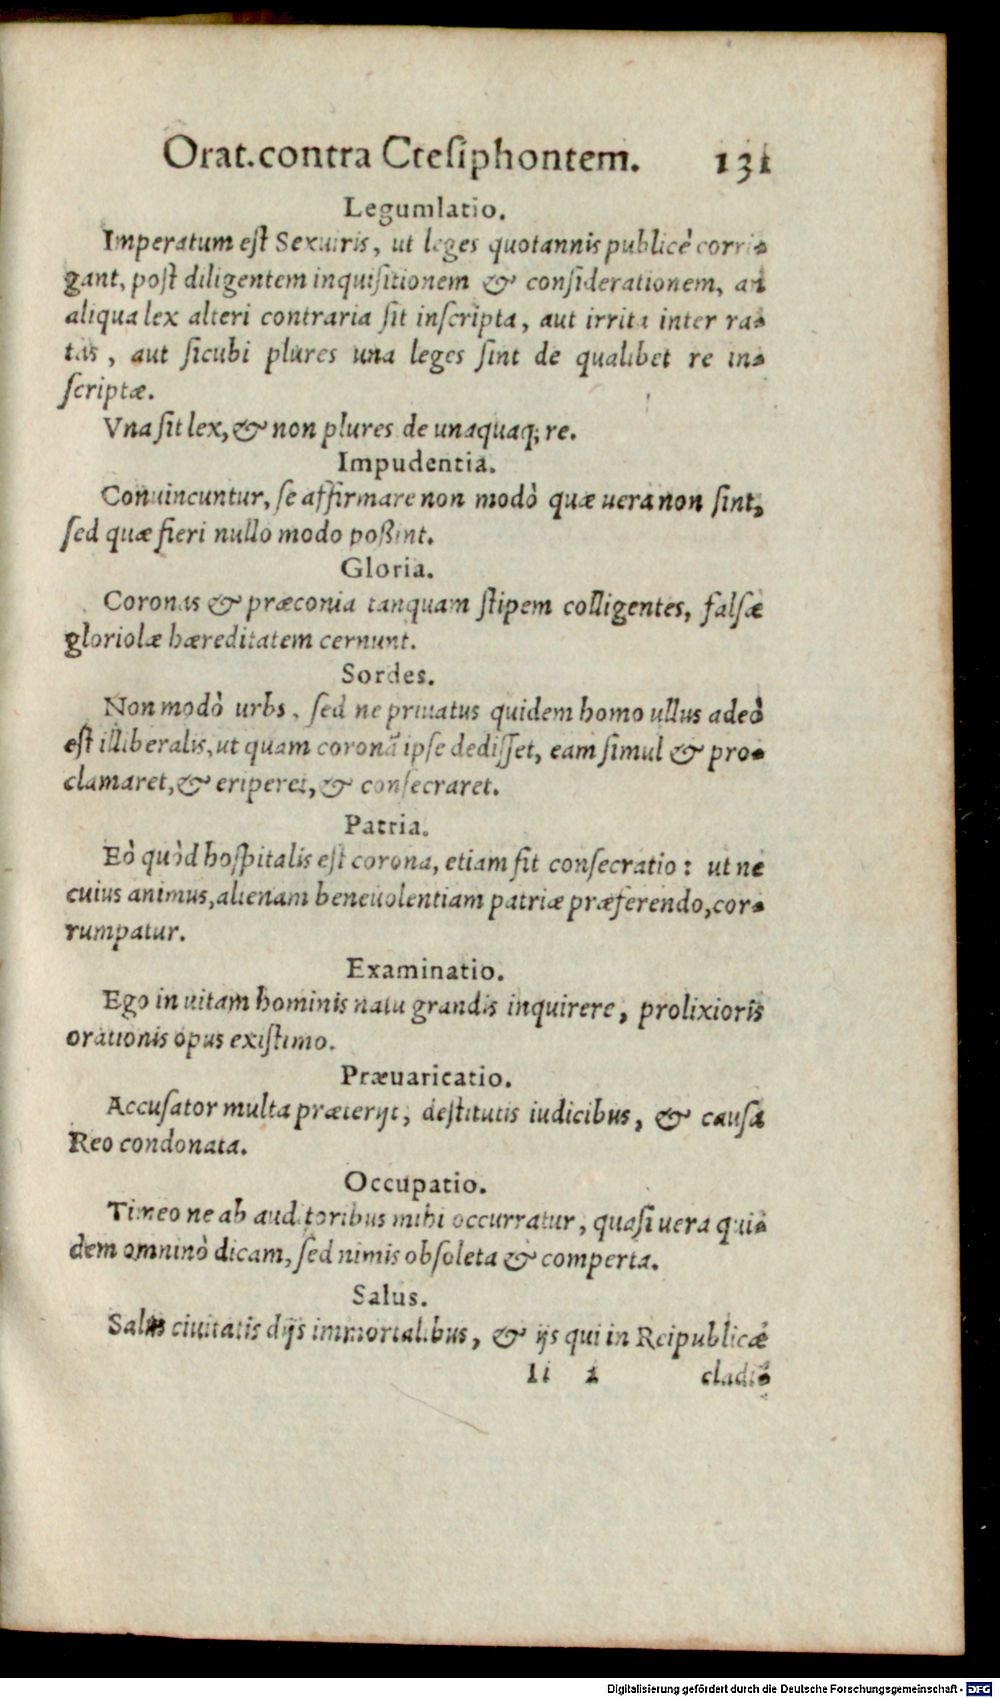 Orat. contra Ctesiphontem. 131
Legumlatio.
Imperatum est Sexuiris, ut leges quotannis publicè corri-
gant, post diligentem inquisitionem & considerationem, an
aliqua lex alteri contraria sit inscripta, aut irrita inter ra-
tas, aut sicubi plures una leges sint de qualibet re in-
scriptæ.
Vna sit lex, & non plures de unaquaq; re.
Impudentia.
Conuincuntur, se affirmare non modò quæ uera non sint,
sed quæ fieri nullo modo poßint.
Gloria.
Coronas & præconia tanquam stipem colligentes, falsæ
gloriolæ hæreditatem cernunt.
Sordes.
Non modò urbs, sed ne priuatus quidem homo ullus adeò
est illiberalis, ut quam coronã ipse dedisset, eam simul & pro-
clamaret, & eriperet, & consecraret.
Patria.
Eò quòd hospitalis est corona, etiam fit consecratio: ut ne
cuius animus, alienam beneuolentiam patriæ præferendo, cor-
rumpatur.
Examinatio.
Ego in uitam hominis natu grandis inquirere, prolixioris
orationis opus existimo.
Præuaricatio.
Accusator multa præterijt, destitutis iudicibus, & causa
Reo condonata.
Occupatio.
Timeo ne ab auditoribus mihi occurratur, quasi uera qui-
dem omninò dicam, sed nimis obsoleta & comperta.
Salus.
Salus ciuitatis dijs immortalibus, & ijs qui in Reipublicæ
Ii 2 cladi-
Digitalisierung gefördert durch die Deutsche Forschungsgemeinschaft - DFG